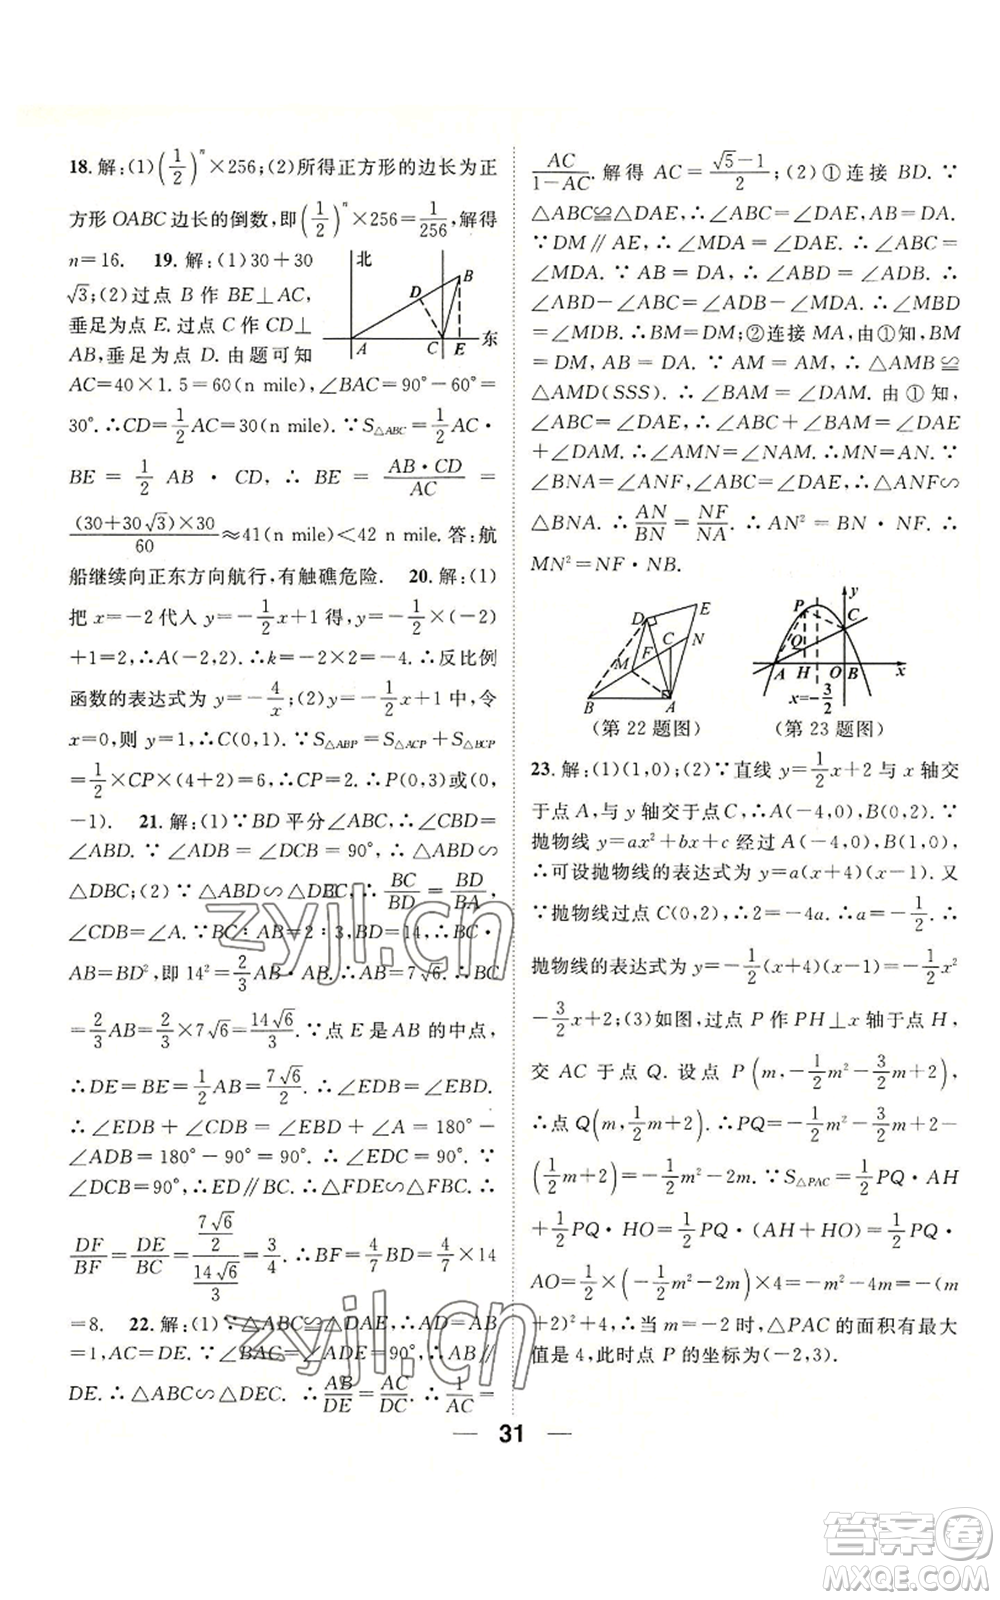 18. 解:(1)(1/2)ⁿ×256;(2)所得正方形的边长为正
方形 OABC 边长的倒数,即(1/2)ⁿ×256=1/256,解得
n=16. 19. 解:(1)30+30
√3;(2)过点 B 作 BE⊥AC,
垂足为点 E. 过点 C 作 CD⊥
AB,垂足为点 D. 由题可知
北
B
D
东
A
C
E
AC=40×1.5=60(n mile),∠BAC=90°-60°=
30°. ∴CD=1/2AC=30(n mile). ∵S△ABC=1/2AC·
BE=1/2AB·CD,∴BE=AB·CD/AC=
(30+30√3)×30/60≈41(n mile)<42 n mile. 答:航
船继续向正东方向航行,有触礁危险. 20. 解:(1)
把 x=-2代入 y=-1/2x+1得,y=-1/2×(-2)
+1=2,∴A(-2,2). ∴k=-2×2=-4. ∴反比例
函数的表达式为 y=-4/x;(2)在 y=-1/2x+1中,令
x=0,则 y=1,∴C(0,1). ∵S△ABP=S△ACP+S△BCP
=1/2×CP×(4+2)=6,∴CP=2. ∴P(0,3)或(0,
-1). 21. 解:(1)∵BD 平分∠ABC,∴∠CBD=
∠ABD. ∵∠ADB=∠DCB=90°,∴△ABD∽
△DBC;(2)∵△ABD∽△DBC,∴BC/BD=BD/BA,
∠BDC=∠A. ∵BC∶AB=2∶3,BD=14,∴BC·
AB=BD²,即14²=2/3AB·AB. ∴AB=7√6. ∴BC
=2/3AB=2/3×7√6=14√6/3. ∵点 E 是 AB 的中点,
∴DE=BE=1/2AB=7√6/2. ∴∠EDB=∠EBD.
∴∠EDB+∠CDB=∠EBD+∠A=180°-
∠ADB=180°-90°=90°. ∴∠EDC=90°. ∵
∠DCB=90°,∴DE∥BC. ∴△FDE∽△FBC. ∴
DF/BF=DE/BC=(7√6/2)/(14√6/3)=3/4. ∴BF=4/7BD=4/7×14
=8. 22. 解:(1)∵△ABC≌△DAE,∴AD=AB
=1,AC=DE. ∵∠BAC=∠ADE=90°,∴AB∥
DE. ∴△ABC∽△DEC. ∴AB/DE=AC/DC. ∴1/AC=
AC/(1-AC). 解得 AC=(√5-1)/2;(2)①连接 BD. ∵
△ABC≌△DAE,∴∠ABC=∠DAE,AB=DA.
∵DM∥AE,∴∠MDA=∠DAE. ∴∠ABC=
∠MDA. ∵AB=DA,∴∠ABD=∠ADB. ∴
∠ABD-∠ABC=∠ADB-∠MDA. ∴∠MBD
=∠MDB. ∴BM=DM;②连接 MA,由①知,BM
=DM,AB=DA. ∵AM=AM,∴△AMB≌
△AMD(SSS). ∴∠BAM=∠DAM. 由①知,
∠ABC=∠DAE,∴∠ABC+∠BAM=∠DAE
+∠DAM. ∴∠AMN=∠NAM. ∴MN=AN. ∵
∠NBA=∠ANF,∠BNA=∠ANF,∴△ANF∽
△BNA. ∴AN/BN=NF/AN. ∴AN²=BN·NF. ∴
MN²=NF·BN.
D
E
C
N
F
M
B
A
(第22题图)
y
P
C
Q
A
H
O
B
x
x=-3/2
(第23题图)
23. 解:(1)(1,0);(2)∵直线 y=1/2x+2与 x 轴交
于点 A,与 y 轴交于点 C,∴A(-4,0),B(0,2). ∵
抛物线 y=ax²+bx+c 经过 A(-4,0),B(1,0),
∴可设抛物线的表达式为 y=a(x+4)(x-1). 又
∵抛物线过点 C(0,2),∴2=-4a. ∴a=-1/2. ∴
抛物线的表达式为 y=-1/2(x+4)(x-1)=-1/2x²
-3/2x+2;(3)如图,过点 P 作 PH⊥x 轴于点 H,
交 AC 于点 Q. 设点 P(m,-1/2m²-3/2m+2),
∴点 Q(m,1/2m+2). ∴PQ=-1/2m²-3/2m+2-
(1/2m+2)=-1/2m²-2m. ∵S△PAC=1/2PQ·AH
+1/2PQ·HO=1/2PQ·(AH+HO)=1/2PQ·
AO=1/2×(-1/2m²-2m)×4=-m²-4m=-(m
+2)²+4,∴当 m=-2时,△PAC 的面积有最大
值是4,此时点 P 的坐标为(-2,3).
31
zyjl.cn
zyjl.cn
答案卷
MXQE.COM